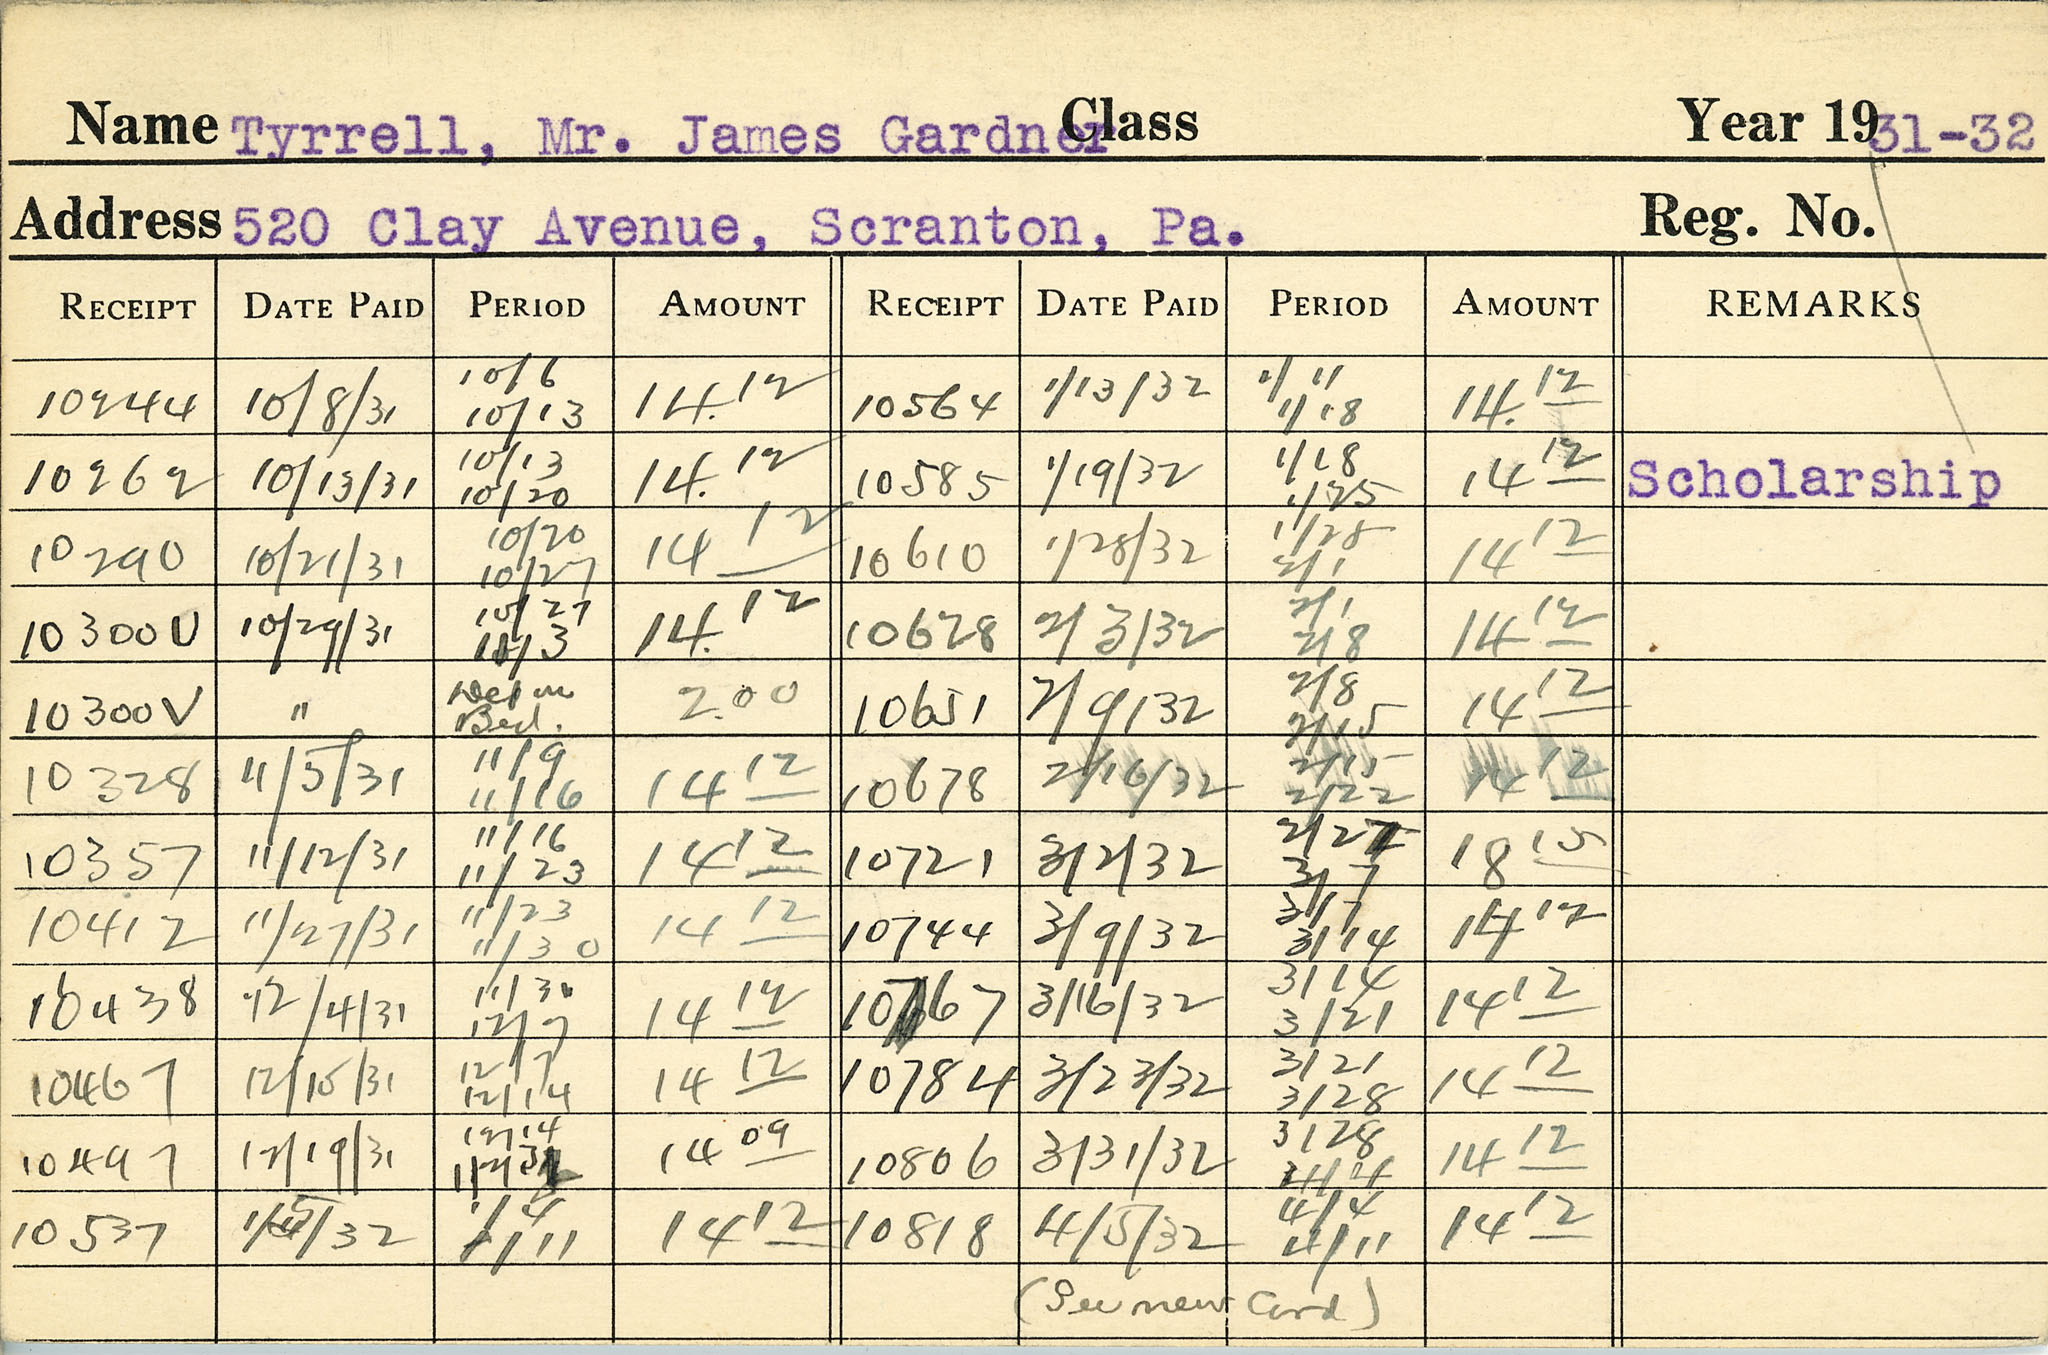 Name Tyrrell, Mr. James Gardner Class Year 1931-32
Address 520 Clay Avenue, Scranton, Pa. Reg. No.
RECEIPT DATE PAID PERIOD AMOUNT RECEIPT DATE PAID PERIOD AMOUNT REMARKS
10244 10/8/31 10/6 10/13 14.12 10564 1/13/32 1/11 1/18 14.12
10262 10/13/31 10/13 10/20 14.12 10585 1/19/32 1/18 1/25 14 12 Scholarship
10290 10/21/31 10/20 10/27 14 12 10610 1/28/32 1/25 2/1 14 12
10300U 10/29/31 10/27 11/3 14.12 10628 2/3/32 2/1 2/8 14 12
10300V " Dep on Bed. 2.00 10651 2/9/32 2/8 2/15 14 12
10328 11/5/31 11/9 11/16 14 12 10678 2/16/32 2/15 2/22 14 12
10357 11/12/31 11/16 11/23 14 12 10721 3/2/32 3/7 18 15
10412 11/27/31 11/23 11/30 14 12 10744 3/9/32 3/7 3/14 14 12
10438 12/4/31 11/30 12/7 14 12 10767 3/16/32 3/14 3/21 14 12
10467 12/10/31 12/7 12/14 14 12 10784 3/23/32 3/21 3/28 14 12
10497 12/19/31 12/14 14 09 10806 3/31/32 3/28 4/4 14 12
10537 1/5/32 1/4 1/11 14 12 10818 4/5/32 4/4 4/11 14 12
(See new Card)